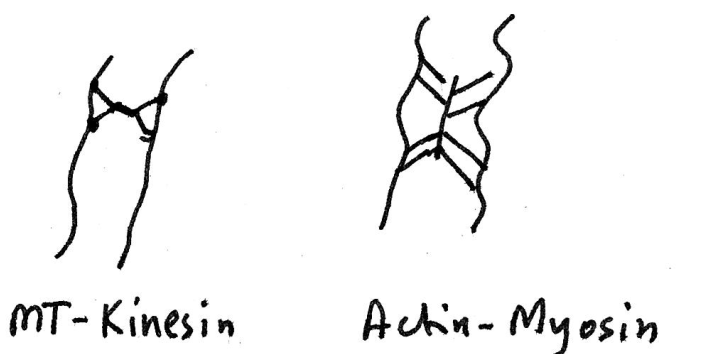 MT-Kinesin Actin-Myosin